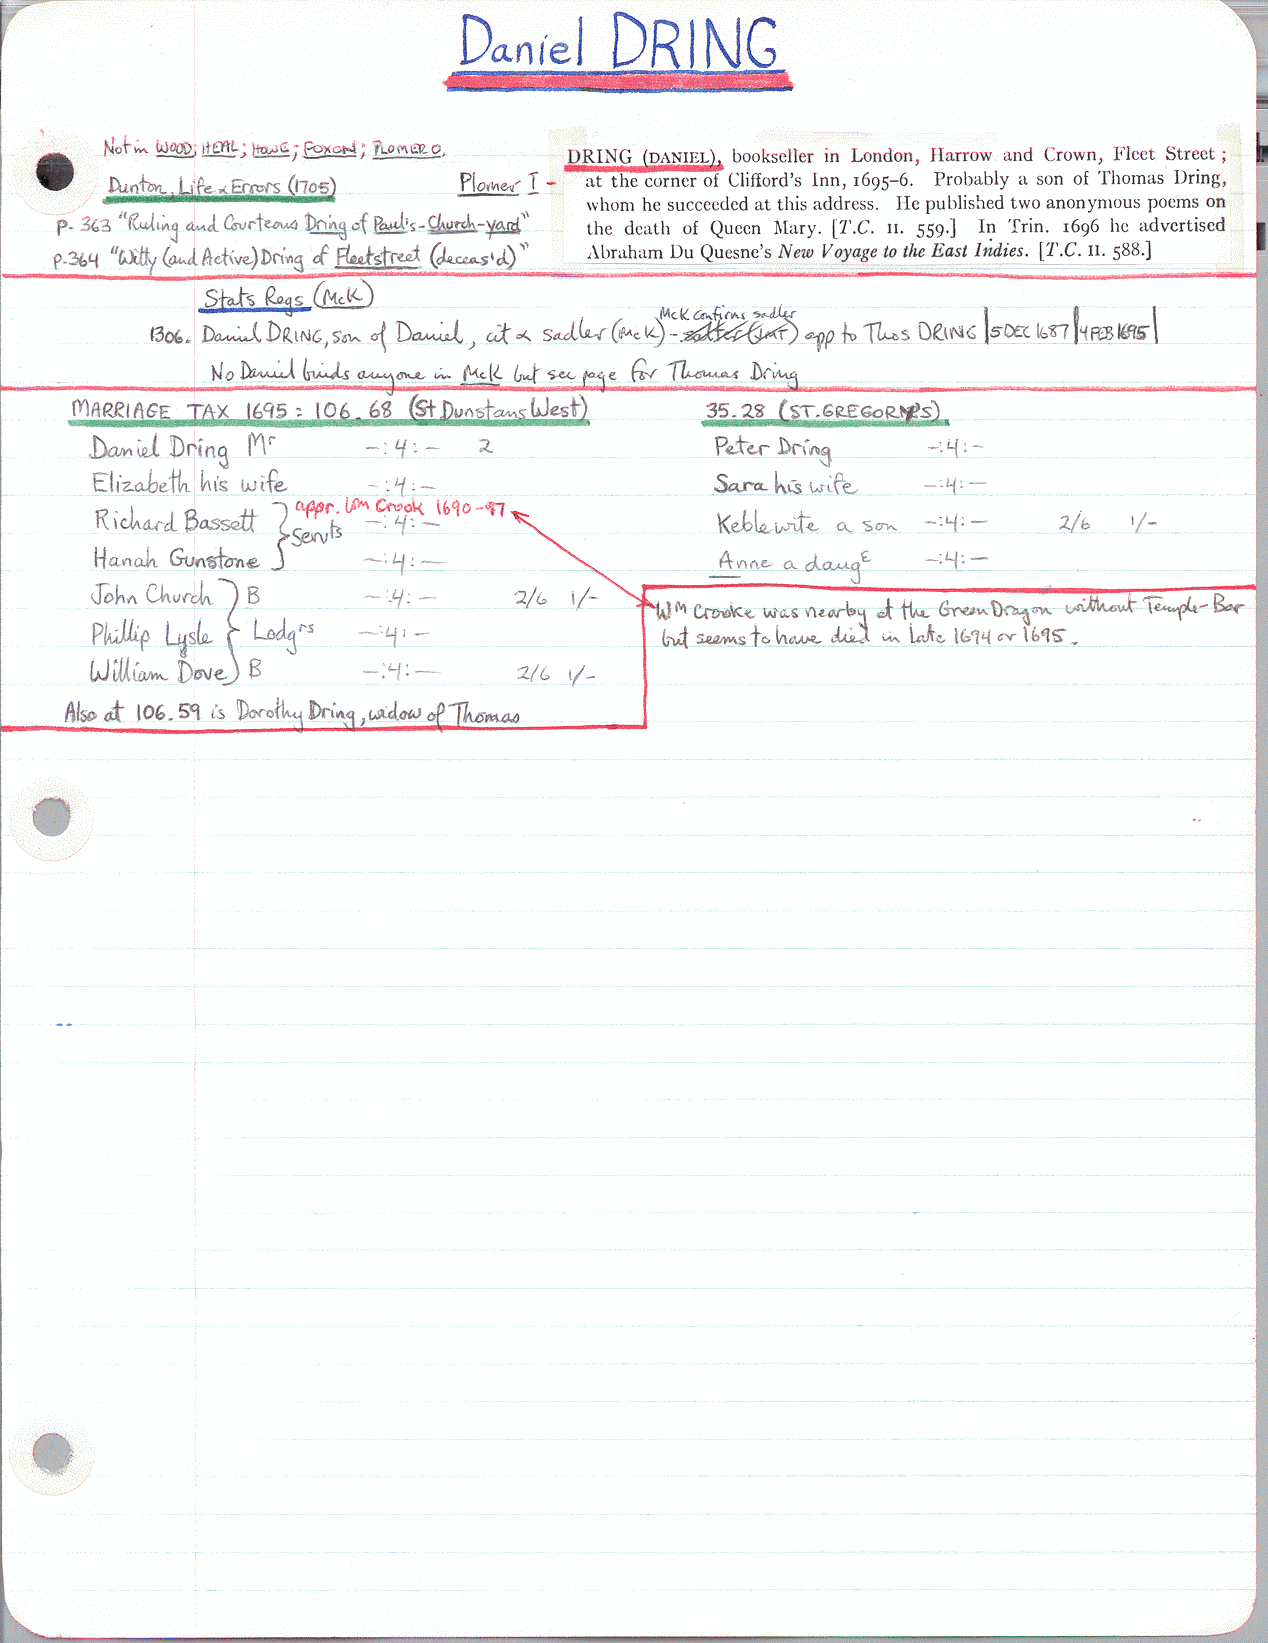 Daniel DRING
Not in WOOD; HEAL; HOWE; FOXON; PLOMER O.
Dunton, Life & Errors (1705)
p. 363 "Ruling and Courteous Dring of Paul's-Church-yard"
p. 364 "Witty (and Active) Dring of Fleetstreet (deceas'd)"
Plomer I -
DRING (DANIEL), bookseller in London, Harrow and Crown, Fleet Street ;
at the corner of Clifford's Inn, 1695-6. Probably a son of Thomas Dring,
whom he succeeded at this address. He published two anonymous poems on
the death of Queen Mary. [T.C. II. 559.] In Trin. 1696 he advertised
Abraham Du Quesne's New Voyage to the East Indies. [T.C. II. 588.]
Stats Regs (McK)
McK confirms sadler
1306. Daniel DRING, son of Daniel, cit & sadler (McK) - salter (IMT) app to Thos DRING | 5 DEC 1687 | 4 FEB 1695 |
No Daniel binds anyone in McK but see page for Thomas Dring
MARRIAGE TAX 1695: 106.68 (St Dunstans West)
Daniel Dring Mr -:4:- 2
Elizabeth his wife -:4:-
appr. Wm Crook 1690-97
Richard Bassett -:4:-
Servts
Hanah Gunstone -:4:-
John Church B -:4:- 2/6 1/-
Phillip Lysle Lodgrs -:4:-
William Dove B -:4:- 2/6 1/-
Also at 106.59 is Dorothy Dring, widow of Thomas
35.28 (ST. GREGORY'S)
Peter Dring -:4:-
Sara his wife -:4:-
Keblewite a son -:4:- 2/6 1/-
Anne a daug -:4:-
Wm Crooke was nearby at the Green Dragon without Temple-Bar
but seems to have died in late 1694 or 1695.